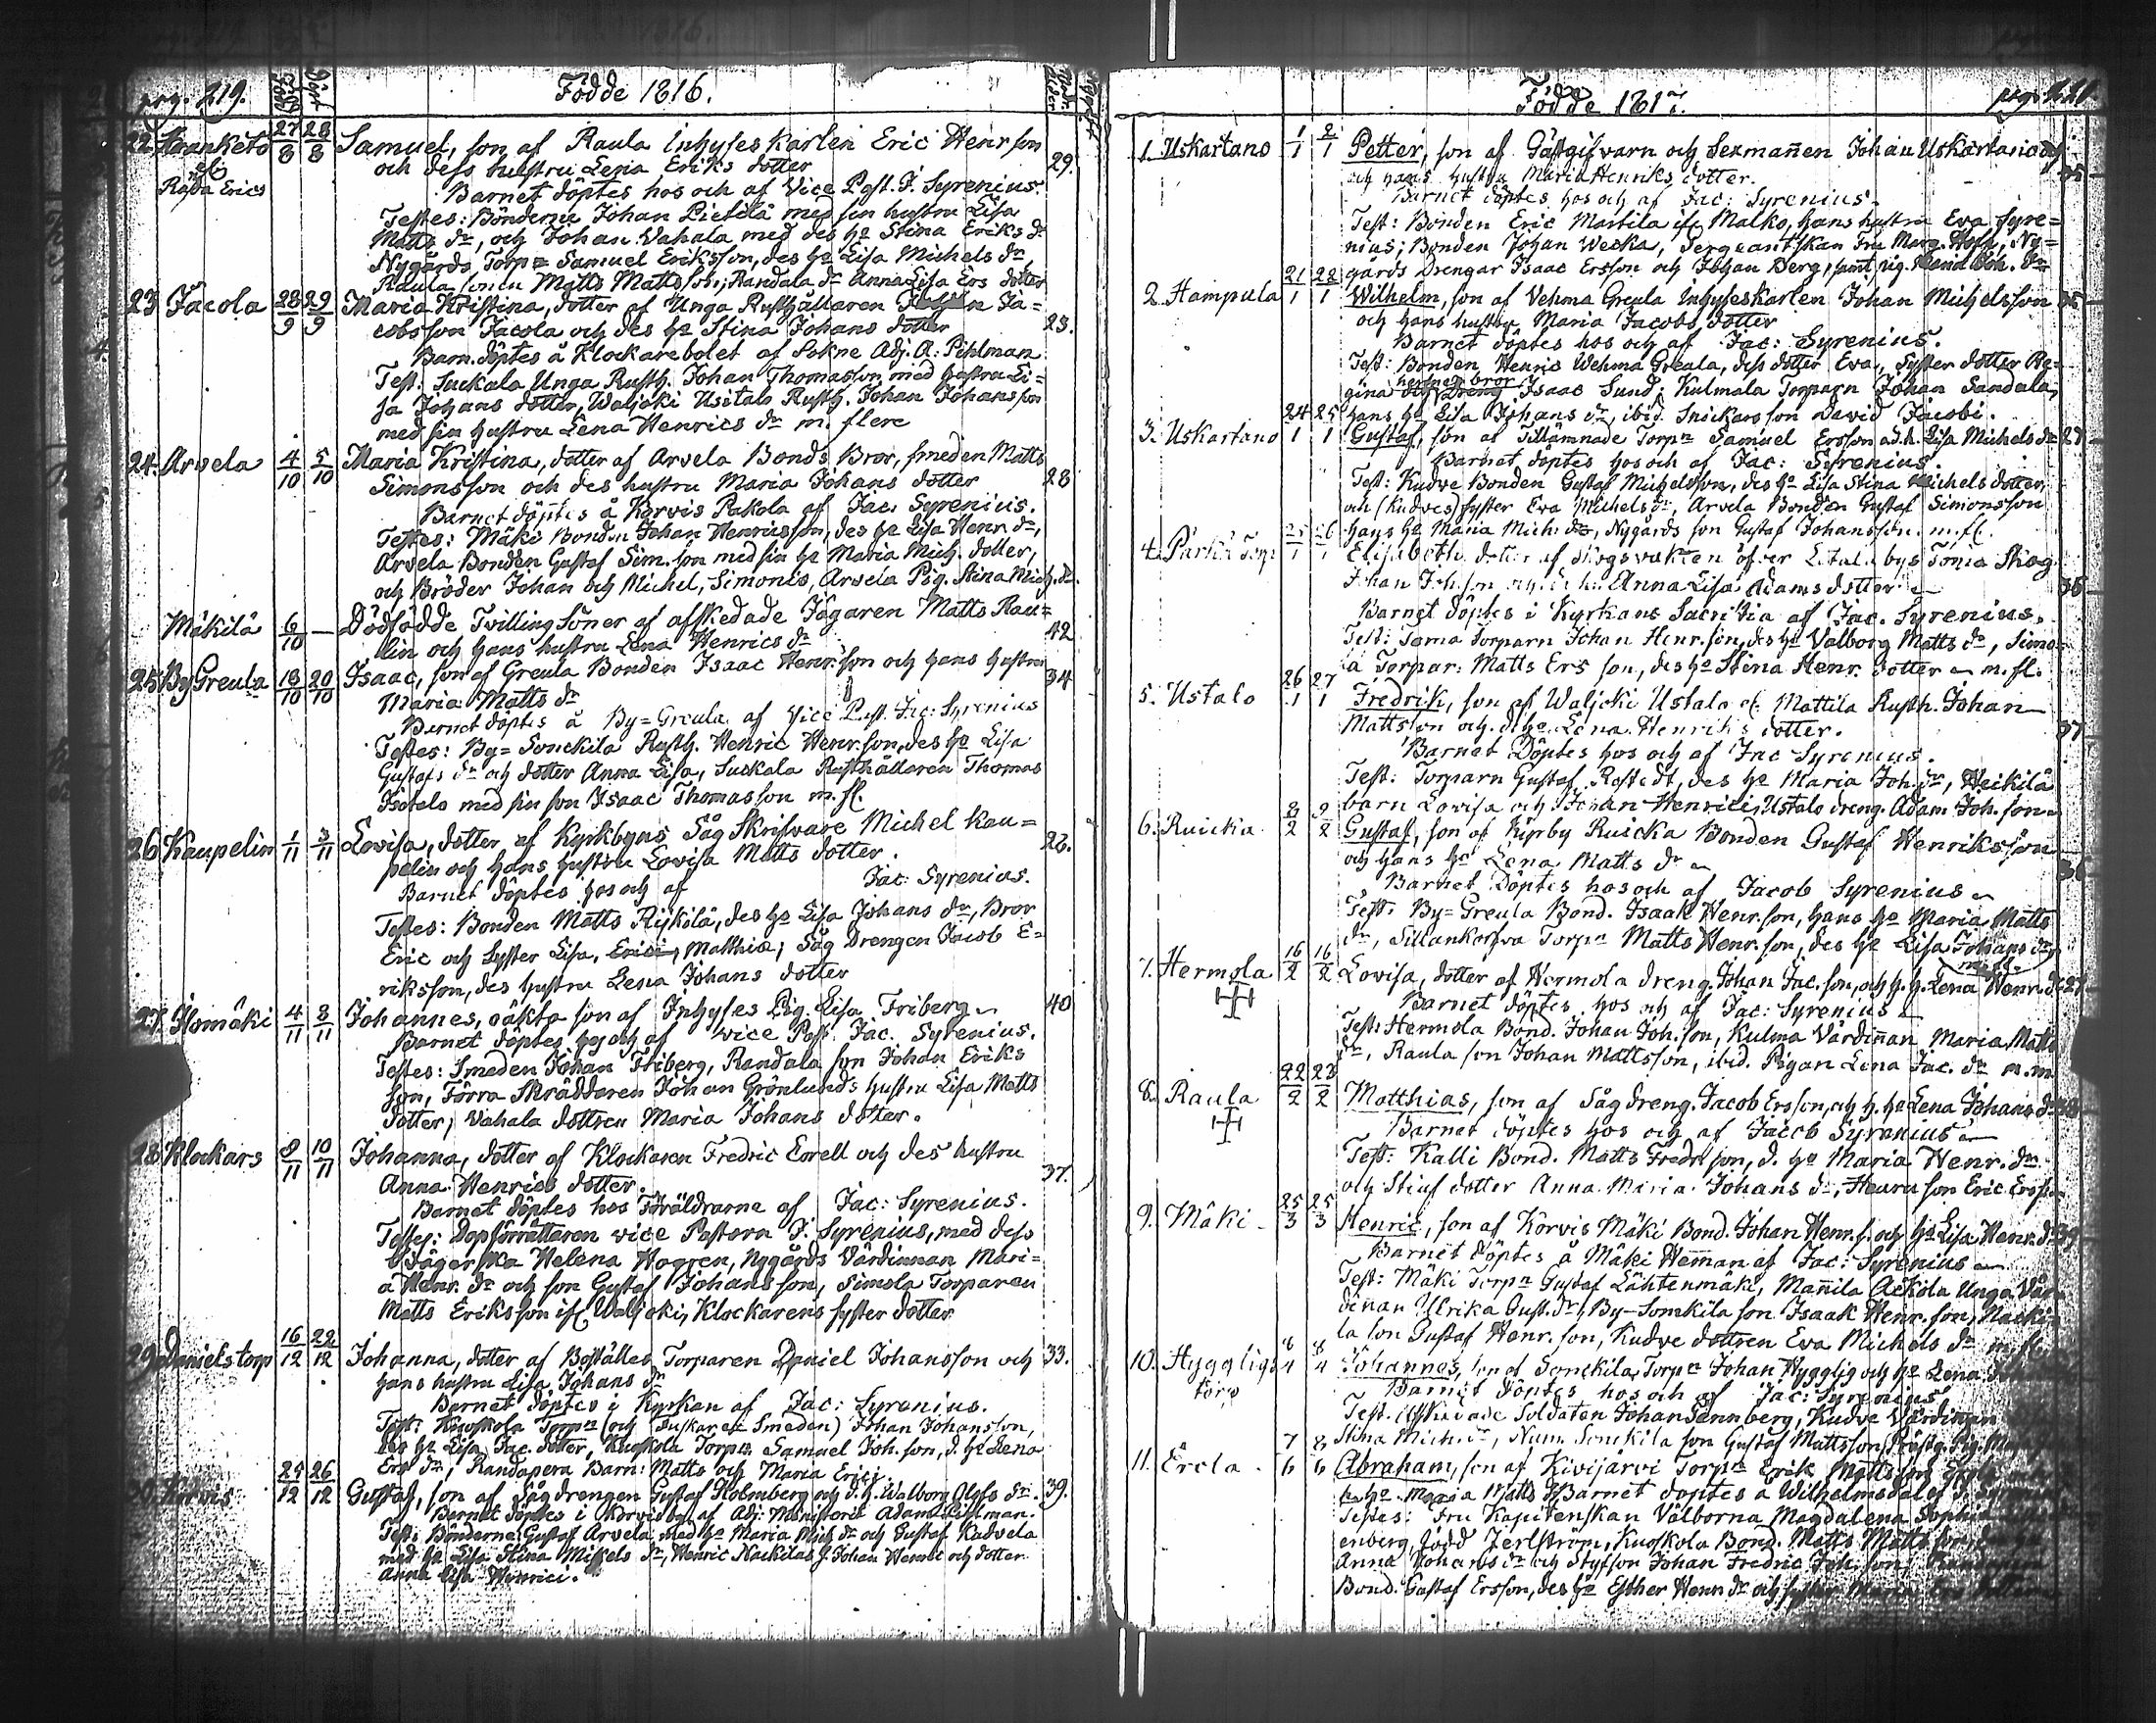 pag. 219.
Född
Döpt
Födde 1816.
Modr. ålder.
22. Kranketo 27/8 28/8 Samuel, son af Raula Inhyseskarlen Eric Henr son
el.
Räfsa Erics
och dess hustru Lena Eriks dotter 29.
Barnet döptes hos och af Vice Past. J. Syrenius.
Testes: Bönderne Johan Pietilä med sin hustru Lisa
Matts dr, och Johan Vahala med des ho Stina Eriks dr
Nygårds Torpn Samuel Eriksson, des ho Lisa Michels dr,
Raula sonen Matts Matts son; Randala dr Anna Lisa Ers dotter
23 Jacola 28/9 29/9 Maria Kristina, dotter af Unga Rusthållaren Johan Ja=
cobsson Jacola och des ho Stina Johans dotter 23.
Barn. döptes å Klockarebolet af Sokne Adj. A: Pihlman
Test. Suckala Unga Rusth. Johan Thomasson med hustru Li=
sa Johans dotter, Waljoki Usitalo Rusth. Johan Johansson
med sin hustru Lena Henrics dr m. flere
24. Arvela 4/10 5/10 Maria Kristina, dotter af Arvela Bonds Bror, smeden Matts
Simonsson och des hustru Maria Johans dotter 28
Barnet döptes å Korvis Pakola af Jac. Syrenius.
Testes: Mäki Bonden Johan Henricsson, des ho Lisa Henr. dr,
Arvela Bonden Gustaf Sim. son med sin ho Maria Mich. dotter,
och Bröder Johan och Michel, Simonis, Arvela Pig. Stina Mich. dr.
Mäkilä 6/10 — Dödfödde Tvilling Söner af afskedade Jägaren Matts Rau=
lin och hans hustru Lena Henrics dr 42
25 By Greula 19/10 20/10 Isaac, son af Greula Bonden Isaac Henr. son och hans hustru 34
Maria Matts dr
Barnet döptes å By=Greula af Vice Past. Jac: Syrenius
Testes: By=Sonckila Rusth. Henric Henr. son, des ho Lisa
Gustafs dr och dotter Anna Lisa, Suckala Rusthållaren Thomas
Isotalo med sin son Isaac Thomasson m. fl.
26 Kaupelin 1/11 3/11 Lovisa, dotter af Kyrkbyns Såg Skrifvare Michel Kau= 26.
pelin och hans hustru Lovisa Matts dotter.
Barnet döptes hos och af Jac: Syrenius.
Testes: Bonden Matts Rijkilä, des ho Lisa Johans dr, Bror
Eric och Syster Lisa, Erici, Matthiæ; Såg Drengen Jacob E=
riksson, des hustru Lena Johans dotter
27 Isomäki 4/11 8/11 Johannes, oäkta son af Inhyses Pig. Lisa Friberg 40
Barnet döptes hos och af vice Past. Jac. Syrenius.
Testes: Smeden Johan Friberg, Randala son Johan Eriks
son, Förra Skräddaren Johan Grönlunds hustru Lisa Matts
dotter, Vahala dottren Maria Johans dotter.
28 Klockars 9/11 10/11 Johanna, dotter af Klockaren Fredric Eorell och des hustru
Anna Henrics dotter. 37.
Barnet döptes hos Föräldrarne af Jac: Syrenius.
Testes: Dopförrättaren vice Pastorn J. Syrenius, med dess
Helena Hogren, Nygårds Värdinnan Mari=
a Henr. dr och son Gustaf Johansson, Simola Torparen
Matts Eriksson ifr. Waljoki, Klockarens syster dotter
29 Danielstorp 16/12 22/12 Johanna, dotter af Boställes Torparen Daniel Johansson och 33.
hans hustru Lisa Johans dr
Barnet döptes i Kyrkan af Jac: Syrenius.
Test: Knoskola Torpn (och Smeden) Johan Johansson,
des ho Lisa Jac. dotter, Knoskola Torpn Samuel Joh. son, d. ho Lena
Ers dr, Randapera Barn: Matts och Maria Erici.
30 Korvis 24/12 26/12 Gustaf, son af Sågdrengen Gustaf Holmberg och d. h. Walborg Olofs dr. 39.
Barnet döptes i Korvis by af Adj: Ministerii Adam Pihlman.
Test: Bönderne Gustaf Arvela med ho Maria Mich dr och Gustaf Kudvela
med ho Lisa Stina Mickels dr, Henric Nackilas J. Johan Henric och dotter
Anna Lisa Henrici.
Födde 1817.
1. Uskartano 1/1 2/1 Petter, son af Gästgifvarn och Sexmannen Johan Uskartano
och hans hustru Maria Henriks dotter. 35
Barnet döptes hos och af Jac: Syrenius
Test: Bonden Eric Mattila ifr Malko, hans hustru Eva Syre=
nius; Bonden Johan Wecka, Sergeantskan Fru Marg. Ny=
gårds Drengar Isaac Ersson och Johan Berg, samt pig. Maria Joh. dr
2. Hampula 21/1 22/1 Wilhelm, son af Vehma Greula Inhyseskarlen Johan Michelsson 35
och hans hustru Maria Jacobs dotter
Barnet döptes hos och af Jac: Syrenius.
Test: Bonden Henric Wehma Greula, dess dotter Eva, Syster dotter Re=
hennes bror
gina och Dreng Isaac Sund, Kulmala Torparn Johan Sandala,
hans ho Lisa Johans dr, ibid. Snickars son David Jacobi.
3. Uskartano 24/1 25/1 Gustaf, son af Tillämnade Torpn Samuel Ersson o. d. h. Lisa Michels dr 27
Barnet döptes hos och af Jac: Syrenius.
Test: Kudve Bonden Gustaf Michelsson, des ho Lisa Stina Michels dotter,
och (Kudves) syster Eva Michels dr, Arvela Bonden Gustaf Simonsson
hans ho Maria Mich. dr, Nygårds son Gustaf Johansson. m. fl.
4. Torp 25/1 26/1 Elisabeth, dotter af skogsvakten öfver bys Skog
Johan Joh. son och d. h. Anna Lisa Adams dotter 36
Barnet döptes i Kyrkans Sacristia af Jac. Syrenius.
Test: Torparn Johan Henr. son, des ho Valborg Matts dr, Simo=
la Torpar: Matts Ers son, des ho Stina Henr. dotter m. fl.
5. Ustalo 26/1 27/1 Fredrik, son af Waljoki Ustalo el. Mattila Rusth. Johan
Mattsson och d. ho. Lena Henriks dotter. 37
Barnet Döptes hos och af Jac Syrenius.
Test: Torparn Gustaf Rostedt, des ho Maria Joh. dr, Heikilä
barn Lovisa och Johan Henrici, Ustalo dreng. Adam Joh. son
6. Ruicka 8/2 9/2 Gustaf, son af Ruicka Bonden Gustaf Henriksson
och hans ho Lena Matts dr
Barnet Döptes hos och af Jacob Syrenius
Test: By=Greula Bond. Isaak Henr. son, hans ho Maria Matts
dr, Sillankorfva Torpn Matts Henr. son, des ho Lisa Johans dr
m. fl.
7. Hermola 16/2 16/2 Lovisa, dotter af Hermola dreng. Johan Jac. son, och h. h. Lena Henr. dr 27
Barnet döptes hos och af Jac: Syrenius
Test: Hermola Bond. Johan Joh. son, Kulma Värdinnan Maria Matts
dr, Raula son Johan Mattsson, ibid. Pigan Lena Jac. dr m. m.
8. Raula 22/2 23/2 Matthias, son af Sågdreng. Jacob Ersson, och h. ho Lena Johans dr
Barnet döptes hos och af Jacob Syrenius
Test: Kalli Bond. Matts Fredr. son, d. ho Maria Henr. dr
och Stiuf dotter Anna Maria Johans dr, son Eric Ersson
9. Mäki 25/3 25/3 Henric, son af Körvis Mäki Bond. Johan Henr. s. och ho Lisa Henr. dr 39
Barnet döptes å Mäki Heman af Jac: Syrenius
Test: Mäki Torpn Gustaf Lähtenmäki, Mannila Ackola Unga Vär=
dinan Ulrika Gust. dr, By-Sonckila son Isaak Henr. son, Nacki=
la son Gustaf Henr. son, Kudve dottren Eva Michels dr m. fl.
10. Hyggligs 8/4 8/4 Johannes, son af Sonckila Torpn Johan Hygglig och ho Lena
torp
Barnet döptes hos och af Jac: Syrenius
Test. Afskedade Soldaten Johan Tannberg, Kudve Värdinan
Stina Mich. dr, Sonckila son Gustaf Mattsson, Prästg. Pig.
11. Erola 7/6 8/6 Abraham, son af Kivijärvi Torpn Erik Mattsson
ho Maria Matts Barnet döptes å Wilhelmsdal af
Testes: Fru Kapitenskan Välborna Magdalena Sophia
enberg, född Jerlström, Knoskola Bond. Matts Matts son
Anna Johans dr och Styfson Johan Fredric Joh. son,
Bond. Gustaf Ersson, des ho Esther Henr dr och syster Maria Ers dotter